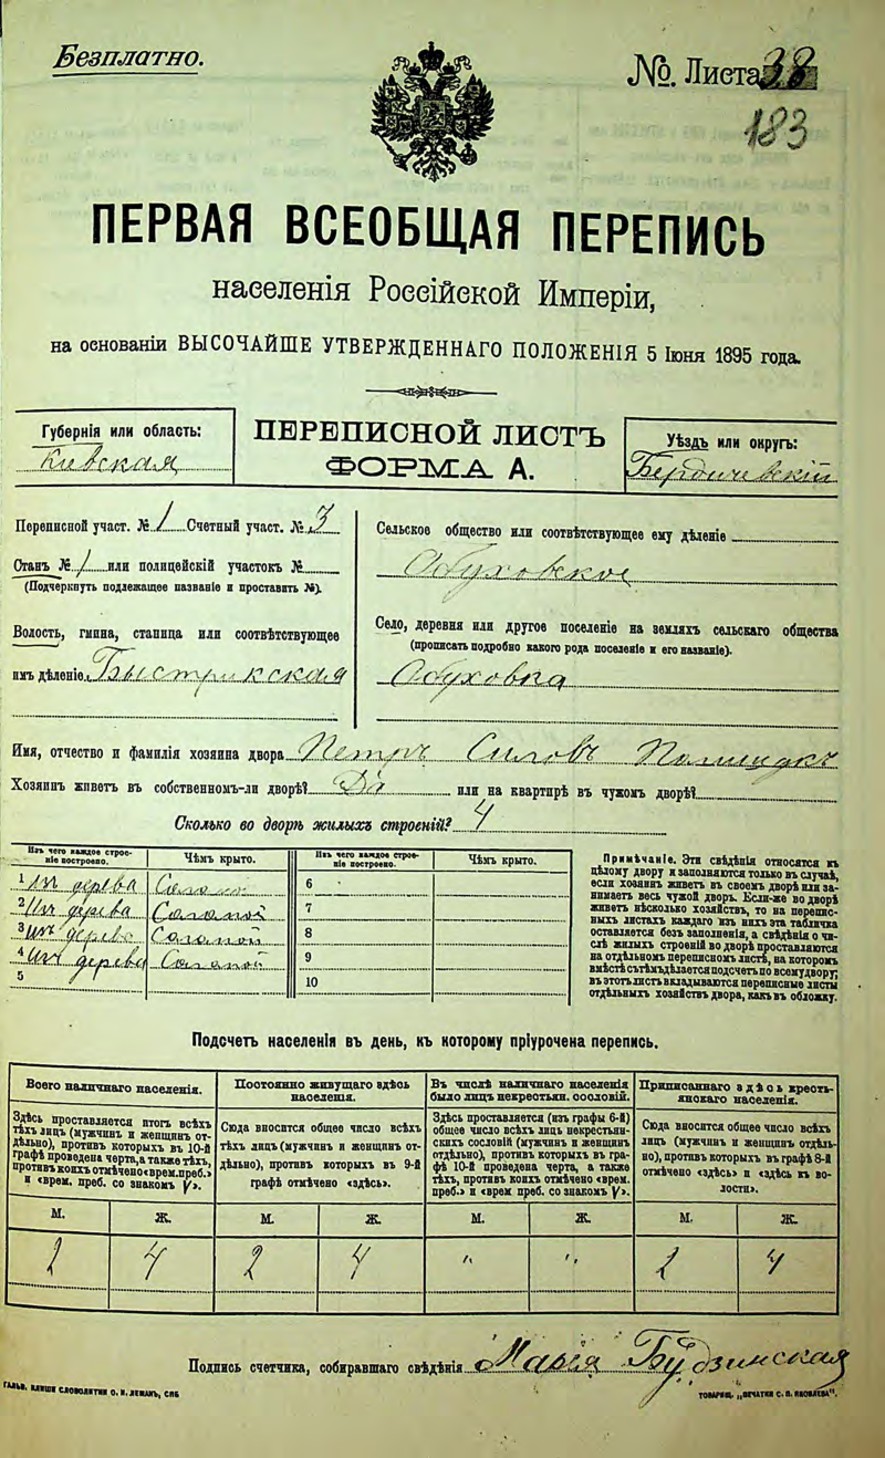 Безплатно.
№. Листа 38
183
ПЕРВАЯ ВСЕОБЩАЯ ПЕРЕПИСЬ
населенія Россійской Имперіи,
на основаніи ВЫСОЧАЙШЕ УТВЕРЖДЕННАГО ПОЛОЖЕНІЯ 5 Іюня 1895 года.
Губернія или область:
Кіевская
ПЕРЕПИСНОЙ ЛИСТЪ
ФОРМА А.
Уѣздъ или округъ:
Бердичевскій
Переписной участ. № 1 Счетный участ. № 3
Станъ № 1 или полицейскій участокъ №
(Подчеркнуть подлежащее названіе и проставить №).
Волость, гмина, станица или соотвѣтствующее
имъ дѣленіе Быстрикская
Сельское общество или соотвѣтствующее ему дѣленіе
Обуховское
Село, деревня или другое поселеніе на земляхъ сельскаго общества
(прописать подробно какого рода поселеніе и его названіе).
Обуховка
Имя, отчество и фамилія хозяина двора Петръ Силовъ
Хозяинъ живетъ въ собственномъ-ли дворѣ? Да или на квартирѣ въ чужомъ дворѣ?
Сколько во дворѣ жилыхъ строеній? 4
Изъ чего каждое строеніе построено.
Чѣмъ крыто.
Изъ чего каждое строеніе построено.
Чѣмъ крыто.
1 Изъ дерева Соломой
2 Изъ дерева Соломой
3 Изъ дерева Соломой
4 Изъ дерева Соломой
5
6
7
8
9
10
Примѣчаніе. Эти свѣдѣнія относятся къ
цѣлому двору и заполняются только въ случаѣ,
если хозяинъ живетъ въ своемъ дворѣ или за-
нимаетъ весь чужой дворъ. Если-же во дворѣ
живетъ нѣсколько хозяйствъ, то на перепис-
ныхъ листахъ каждаго изъ нихъ эта табличка
оставляется безъ заполненія, а свѣдѣнія о чи-
слѣ жилыхъ строеній во дворѣ проставляются
на отдѣльномъ переписномъ листѣ, на которомъ
вмѣстѣ съ тѣмъ дѣлается подсчетъ по всему двору;
въ этотъ листъ вкладываются переписные листы
отдѣльныхъ хозяйствъ двора, какъ въ обложку.
Подсчетъ населенія въ день, къ которому пріурочена перепись.
Всего наличнаго населенія.
Здѣсь проставляется итогъ всѣхъ
тѣхъ лицъ (мужчинъ и женщинъ от-
дѣльно), противъ которыхъ въ 10-й
графѣ проведена черта, а также тѣхъ,
противъ коихъ отмѣчено «врем. преб.»
и «врем. преб. со знакомъ V».
Постоянно живущаго здѣсь
населенія.
Сюда вносится общее число всѣхъ
тѣхъ лицъ (мужчинъ и женщинъ от-
дѣльно), противъ которыхъ въ 9-й
графѣ отмѣчено «здѣсь».
Въ числѣ наличнаго населенія
было лицъ некрестьян. сословій.
Здѣсь проставляется (изъ графы 6-й)
общее число всѣхъ лицъ некрестьян-
скихъ сословій (мужчинъ и женщинъ
отдѣльно), противъ которыхъ въ гра-
фѣ 10-й проведена черта, а также
тѣхъ, противъ коихъ отмѣчено «врем.
преб.» и «врем. преб. со знакомъ V».
Приписаннаго здѣсь кресть-
янскаго населенія.
Сюда вносится общее число всѣхъ
лицъ (мужчинъ и женщинъ отдѣль-
но), противъ которыхъ въ графѣ 8-й
отмѣчено «здѣсь» и «здѣсь къ во-
лости».
М. Ж. М. Ж. М. Ж. М. Ж.
2 4 2 4 " " 2 4
Подпись счетчика, собиравшаго свѣдѣнія Марія Будзинская
ГАЛЬВ. КЛИШЕ СЛОВОЛИТНИ О. И. ЛЕМАНЪ, СПБ
ТОВАРИЩ. „ПЕЧАТНИ С. П. ЯКОВЛЕВА“.